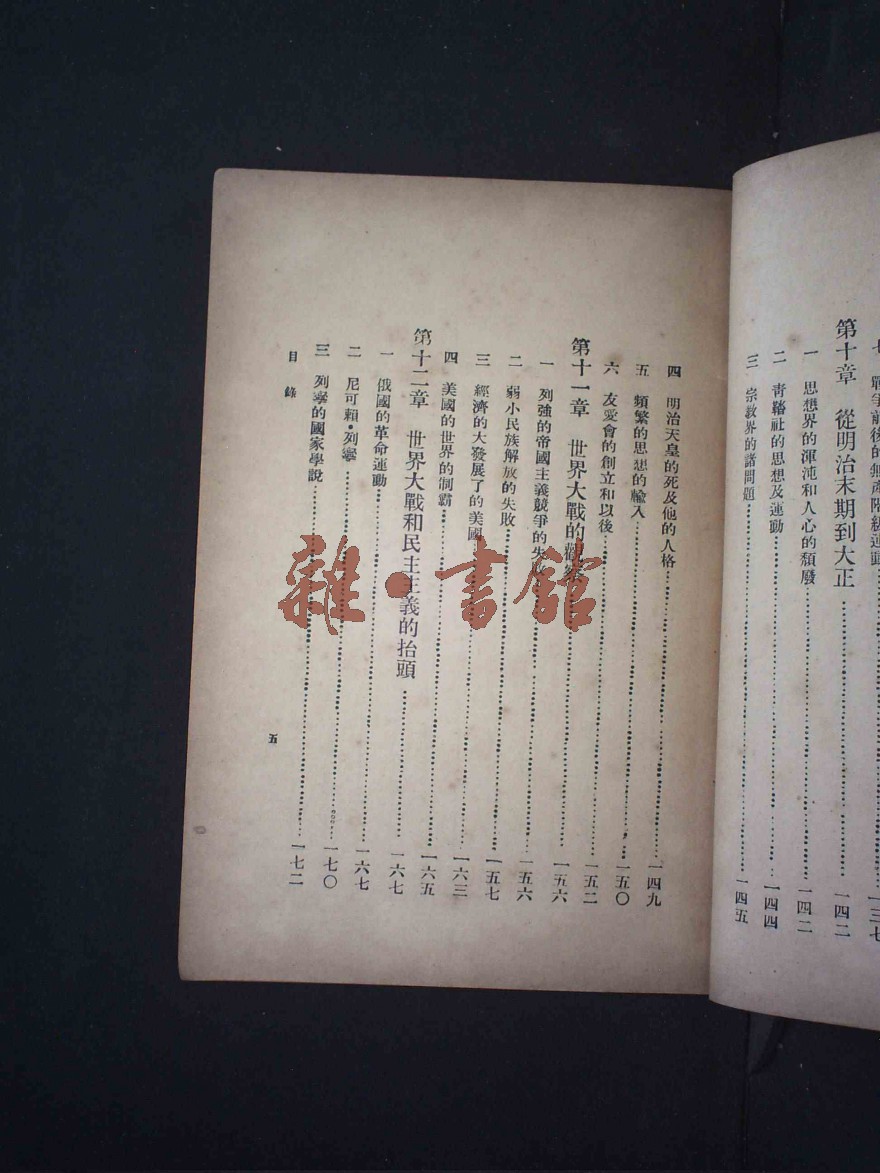 七 戰爭前後的無產階級運動……一三七
第十章 從明治末期到大正……一四二
一 思想界的渾沌和人心的頹廢……一四二
二 青鞜社的思想及運動……一四四
三 宗教界的諸問題……一四五
四 明治天皇的死及他的人格……一四九
五 頻繁的思想的輸入……一五〇
六 友愛會的創立和以後……一五二
第十一章 世界大戰的觀察……一五六
一 列強的帝國主義競爭的失敗……一五六
二 弱小民族解放的失敗……一五七
三 經濟的大發展了的美國……一六三
四 美國的世界的制霸……一六五
第十二章 世界大戰和民主主義的抬頭……一六七
一 俄國的革命運動……一六七
二 尼可賴•列寧……一七〇
三 列寧的國家學說……一七二
目錄
五
雜•書館